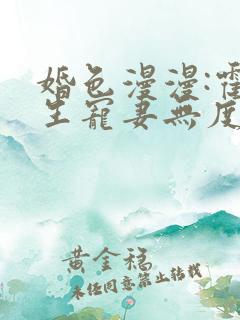 婚色漫漫:霍
生寵妻無度
黄金福
未经同意禁止转载